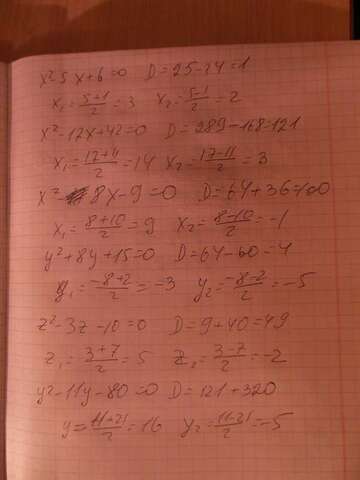 x²-5x+6=0 D=25-24=1
x₁=(5+1)/2=3 x₂=(5-1)/2=2
x²-17x+42=0 D=289-168=121
x₁=(17+11)/2=14 x₂=(17-11)/2=3
x²-8x-9=0 D=64+36=100
x₁=(8+10)/2=9 x₂=(8-10)/2=-1
y²+8y+15=0 D=64-60=4
y₁=(-8+2)/2=-3 y₂=(-8-2)/2=-5
z²-3z-10=0 D=9+40=49
z₁=(3+7)/2=5 z₂=(3-7)/2=-2
y²-11y-80=0 D=121+320
y=(11+21)/2=16 y₂=(11-21)/2=-5